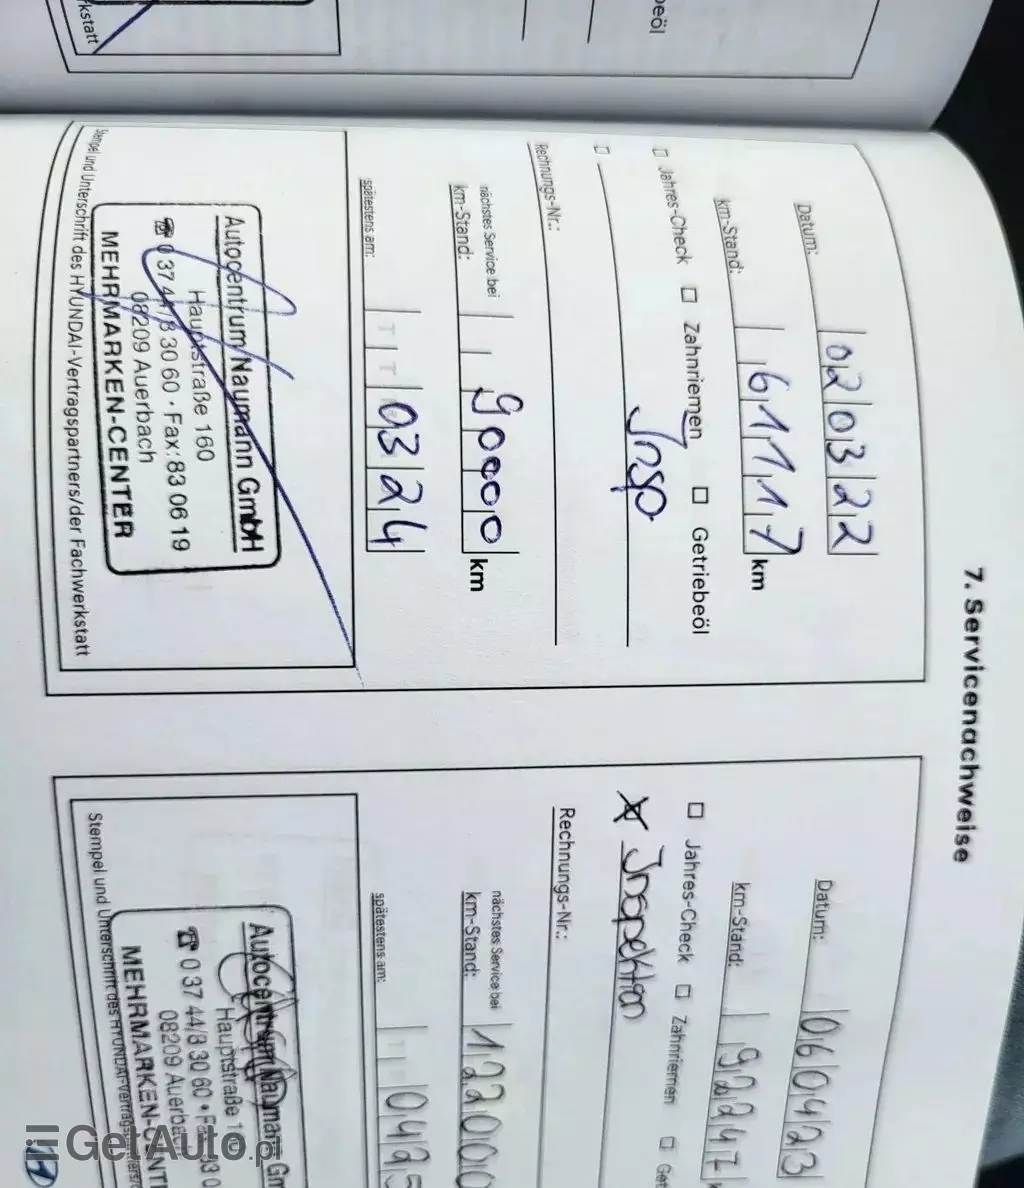 rkstatt
beöl
7. Servicenachweise
Datum: 020322
km-Stand: 61117 km
Jahres-Check Zahnriemen Getriebeöl
Insp
Rechnungs-Nr.:
nächstes Service bei
km-Stand: 90000 km
spätestens am: TT 0324
Autocentrum Naumann GmbH
Hauptstraße 160
☎ 0 37 44/8 30 60 · Fax: 83 06 19
08209 Auerbach
MEHRMARKEN-CENTER
Stempel und Unterschrift des HYUNDAI-Vertragspartners/der Fachwerkstatt
Datum: 060423
km-Stand: 92247 k
Jahres-Check Zahnriemen Get
x Inspektion
Rechnungs-Nr.:
nächstes Service bei
km-Stand: 122000
spätestens am: 0425
Autocentrum Naumann Gm
Hauptstraße 1
☎ 0 37 44/8 30 60 · F 83 0
08209 Auerba
MEHRMARKEN-CENT
Stempel und Unterschrift des HYUNDAI-Vertragspartners/
GetAuto.pl